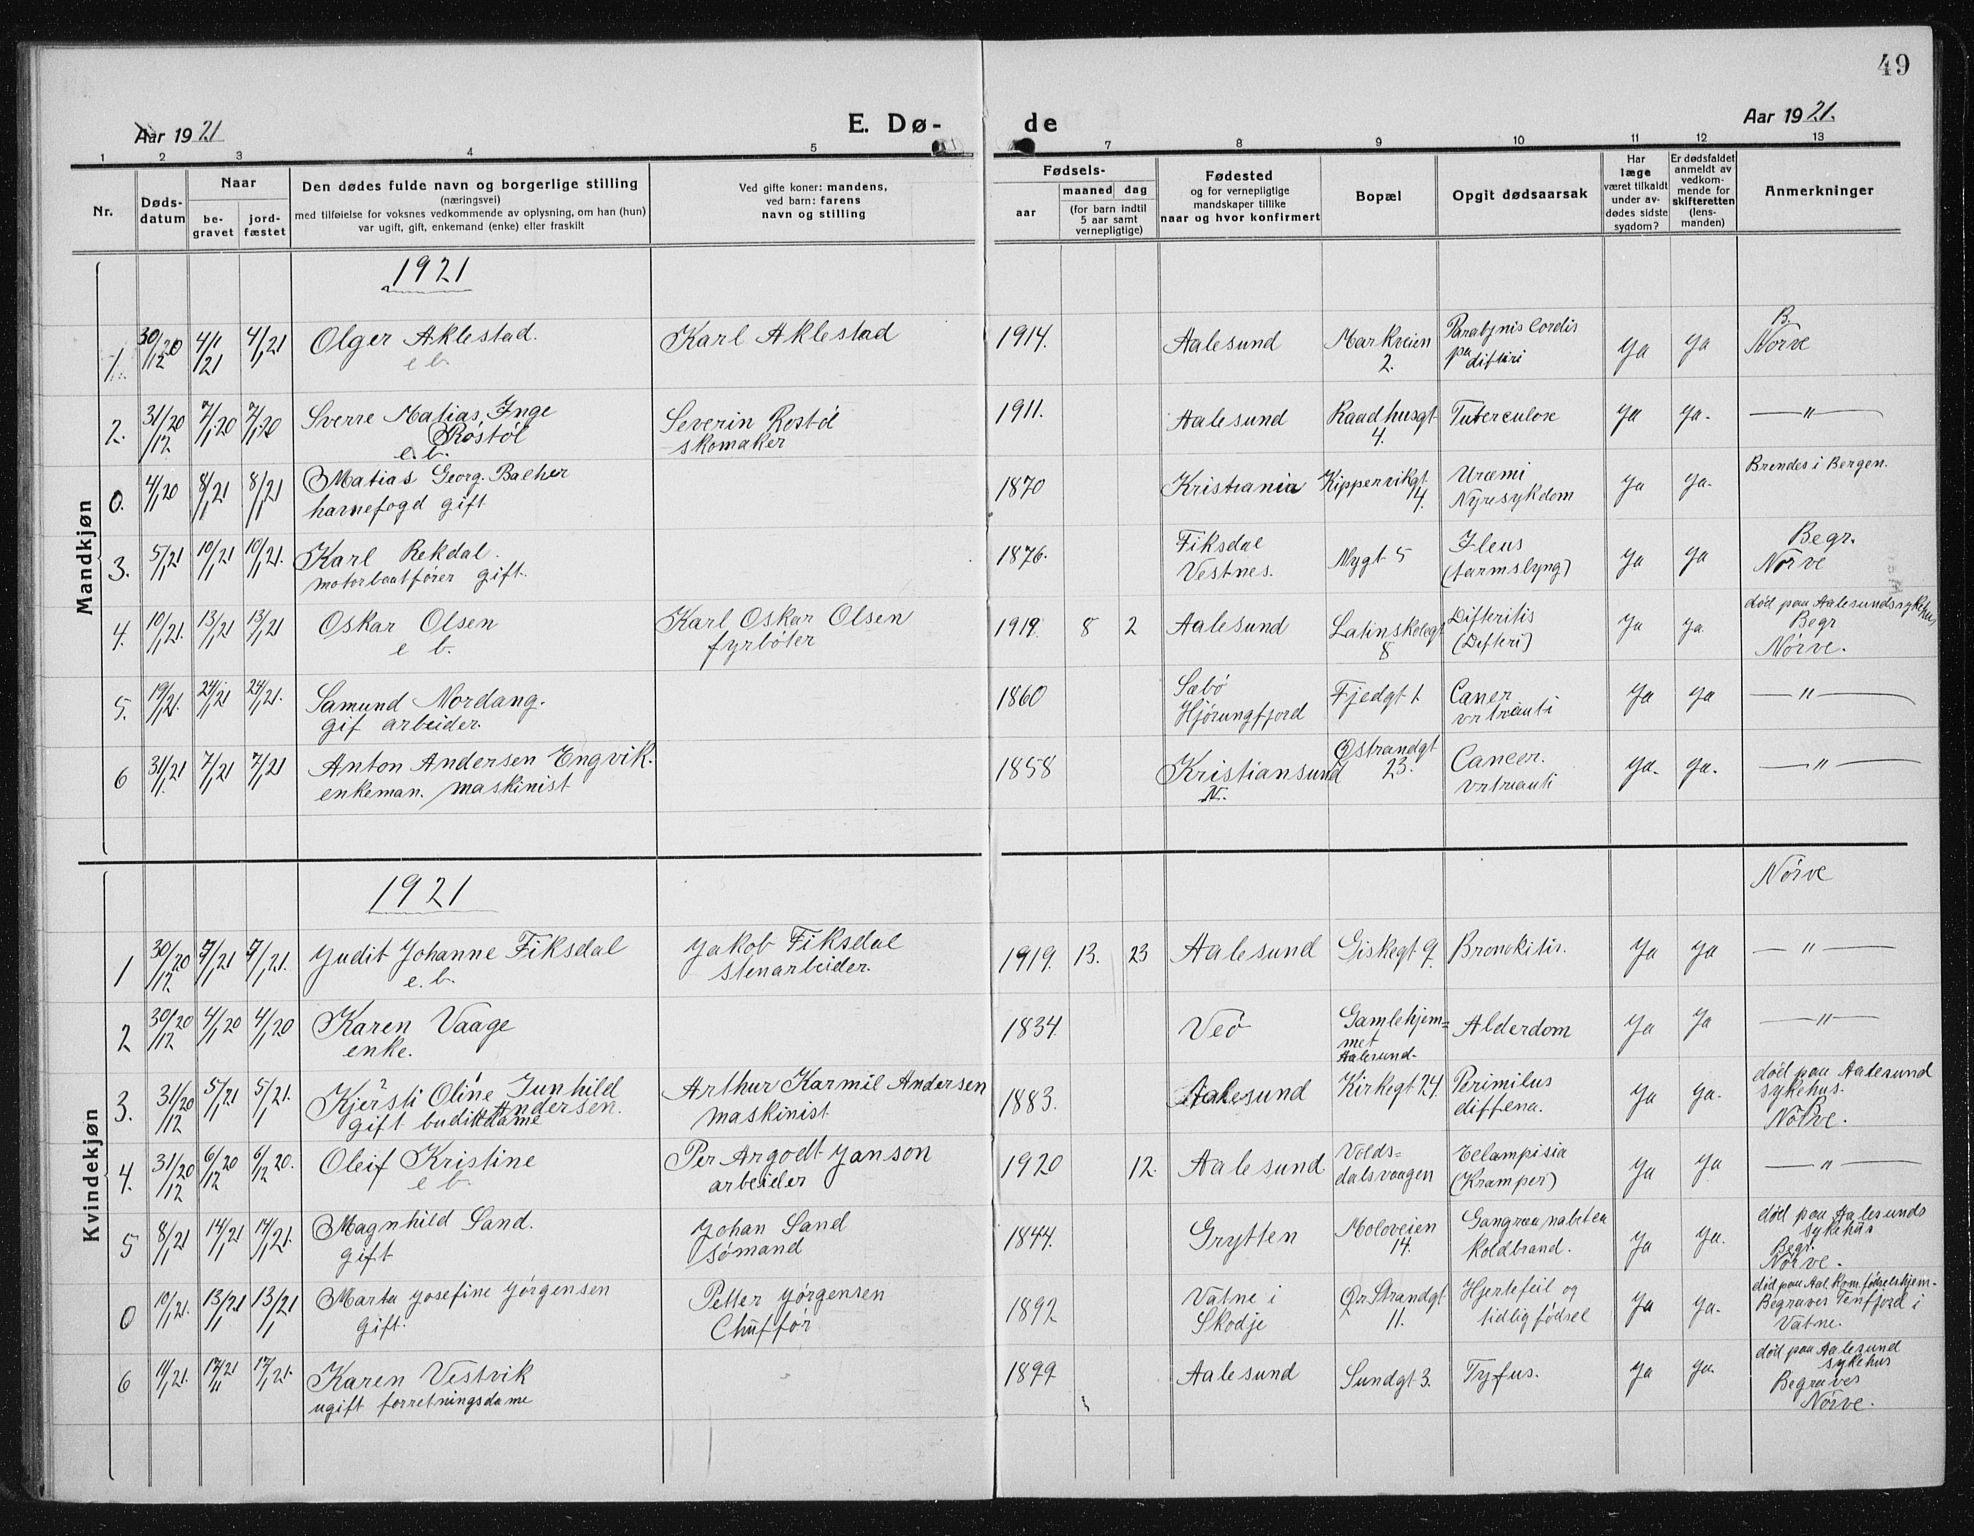 49
Aar 1921
E. Dø-
de
Aar 1921.
1 2 3 4 5 7 8 9 10 11 12 13
Nr.
Døds-
datum
Naar
be-
gravet
jord-
fæstet
Den dødes fulde navn og borgerlige stilling
(næringsvei)
med tilføielse for voksnes vedkommende av oplysning, om han (hun)
var ugift, gift, enkemand (enke) eller fraskilt
Ved gifte koner: mandens,
ved barn: farens
navn og stilling
Fødsels-
aar
maaned dag
(for barn indtil
5 aar samt
vernepligtige)
Fødested
og for vernepligtige
mandskaper tillike
naar og hvor konfirmert
Bopæl
Opgit dødsaarsak
Har
læge
været tilkaldt
under av-
dødes sidste
sygdom?
Er dødsfaldet
anmeldt av
vedkom-
mende for
skifteretten
(lens-
manden)
Anmerkninger
Mandkjøn
1921
1. 30/12 20 4/1 21 4/1 21 Olger Aklestad. Karl Aklestad 1914. Aalesund Markveien Ja Ja B.
e b. 2. difteri Nørve
2. 31/12 20 7/1 20 7/1 20 Sverre Matias Inge Severin Rostøl 1911. Aalesund Raadhusgt Tuberculose Ja Ja. — " —
Røstøl skomaker 4.
e. b.
0. 4/1 20 8/1 21 8/1 21 Matias Georg. Balher 1870 Kristiania Kippervikgt Uræmi Ja Ja. Brendes i Bergen.
havnefogd gift 14. Nyresykdom
3. 5/1 21 10/1 21 10/1 21 Karl Rekdal. 1876. Fiksdal Nygt 5 Ileus Ja Ja Begr.
motorbaatfører gift. Vestnes. (tarmslyng) Nørve
4. 10/1 21. 13/1 21 13/1 21 Oskar Olsen Karl Oskar Olsen 1919. 8 2 Aalesund Latinskolegt Difteritis Ja Ja død paa Aalesundssykehus
e b. fyrbøter 8 (Difteri) Begr
Nørve.
5. 19/1 21. 24/1 21 24/1 21. Samund Nordang. 1860 Sæbø Fjedgt 1 Ja Ja — " —
gif arbeider. Hjørungfjord
6 31/1 21 7/1 21 7/1 21 Anton Andersen Engvik. 1858 Kristiansund Østrandgt Cancer. Ja. Ja. — " —
enkeman. maskinist N. 23.
Kvindekjøn
1921 Nørve
1 30/12 20 7/1 21 7/1 21. Judit Johanne Fiksdal Jakob Fiksdal 1919. 13. 23 Aalesund Giskegt 9. Bronkitis. Ja Ja — " —
e. b. stenarbeider.
2 30/12 20 4/1 20 4/1 20 Karen Vaage 1834 Veø Gamlehjem= Alderdom Ja Ja — " —
enke. met
Aalesund-
3. 31/12 20 5/1 21 5/1 21. Kjersti Oline Gunhild Arthur Karmil Andersen 1883. Aalesund Kirkegt 24. Ja Ja. død paa Aalesund
Andersen. maskinist sykehus.
gift Nørve.
4. 31/12 20 6/12 20 6/12 20. Oleif Kristine Per Argodt Janson 1920 12. Aalesund Volds= Ja Ja — " —
e b. arbeider dalsvaagen (Kramper)
5 8/1 21 14/1 21 14/1 21. Magnhild Sand. Johan Sand 1844. Grytten Moloveien Ja Ja. død paa Aalesunds
gift sømand 14. koldbrand. sykehus
Begr.
Nørve.
0 10/1 21. 13/1 21 13/1 21 Marta Josefine Jørgensen Petter Jørgensen 1892 Vatne i Ør. Strandgt Hjertefeil og Ja Ja.
gift. Chuffør Skodje 11. tidlig fødsel Begraves Tenfjord i
Vatne.
6 11/1 21. 17/1 21 17/1 21. Karen Vestvik 1899 Aalesund Sundgt 3. Tyfus. Ja Ja. død paa Aalesund
ugift forretningsdame sykehus
Begraves
Nørve.